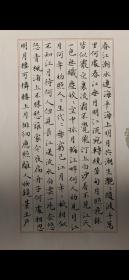 春江潮水連海平海上明月共潮生灩灩隨波千萬
里何處春江無月明江流宛轉繞芳甸月照花林
皆似霰空裏流霜不覺飛汀上白沙看不見江天
一色無纖塵皎皎空中孤月輪江畔何人初見月江
月何年初照人人生代代無窮已江月年年望相似
不知江月待何人但見長江送流水白雲一片去悠
悠青楓浦上不勝愁誰家今夜扁舟子何處相思
明月樓可憐樓上月徘徊應照離人妝鏡臺玉戶